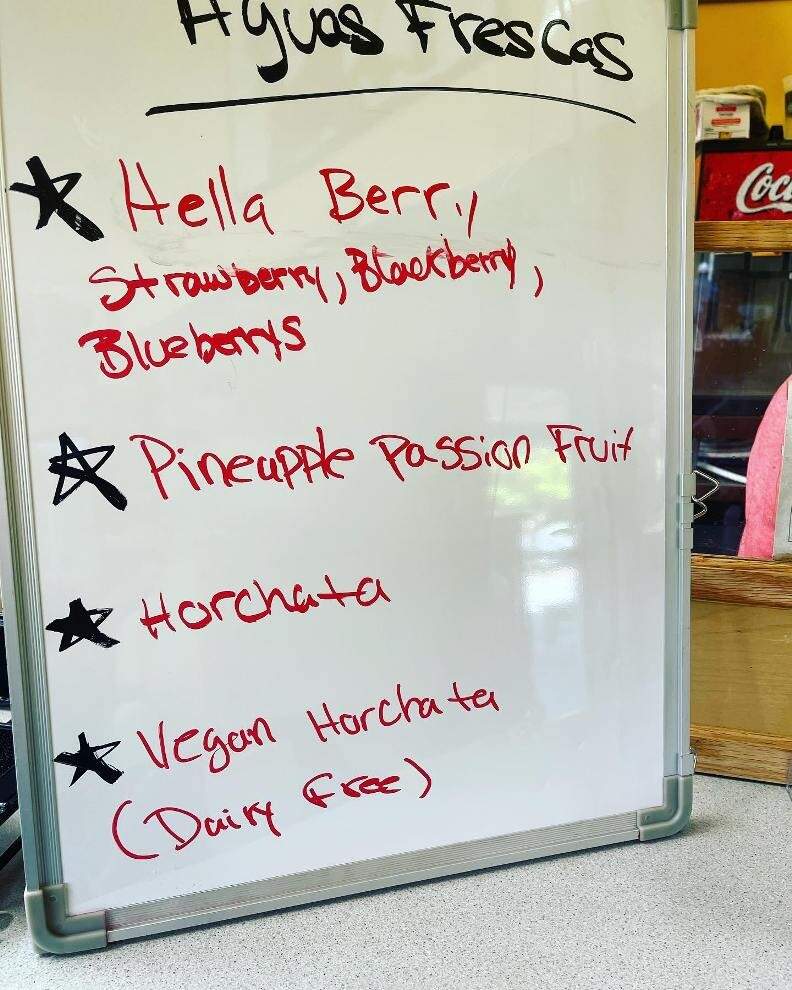 Aguas Frescas
Hella Berry
Strawberry, Blackberry,
Blueberrys
Pineapple Passion Fruit
Horchata
Vegan Horchata
(Dairy Free)